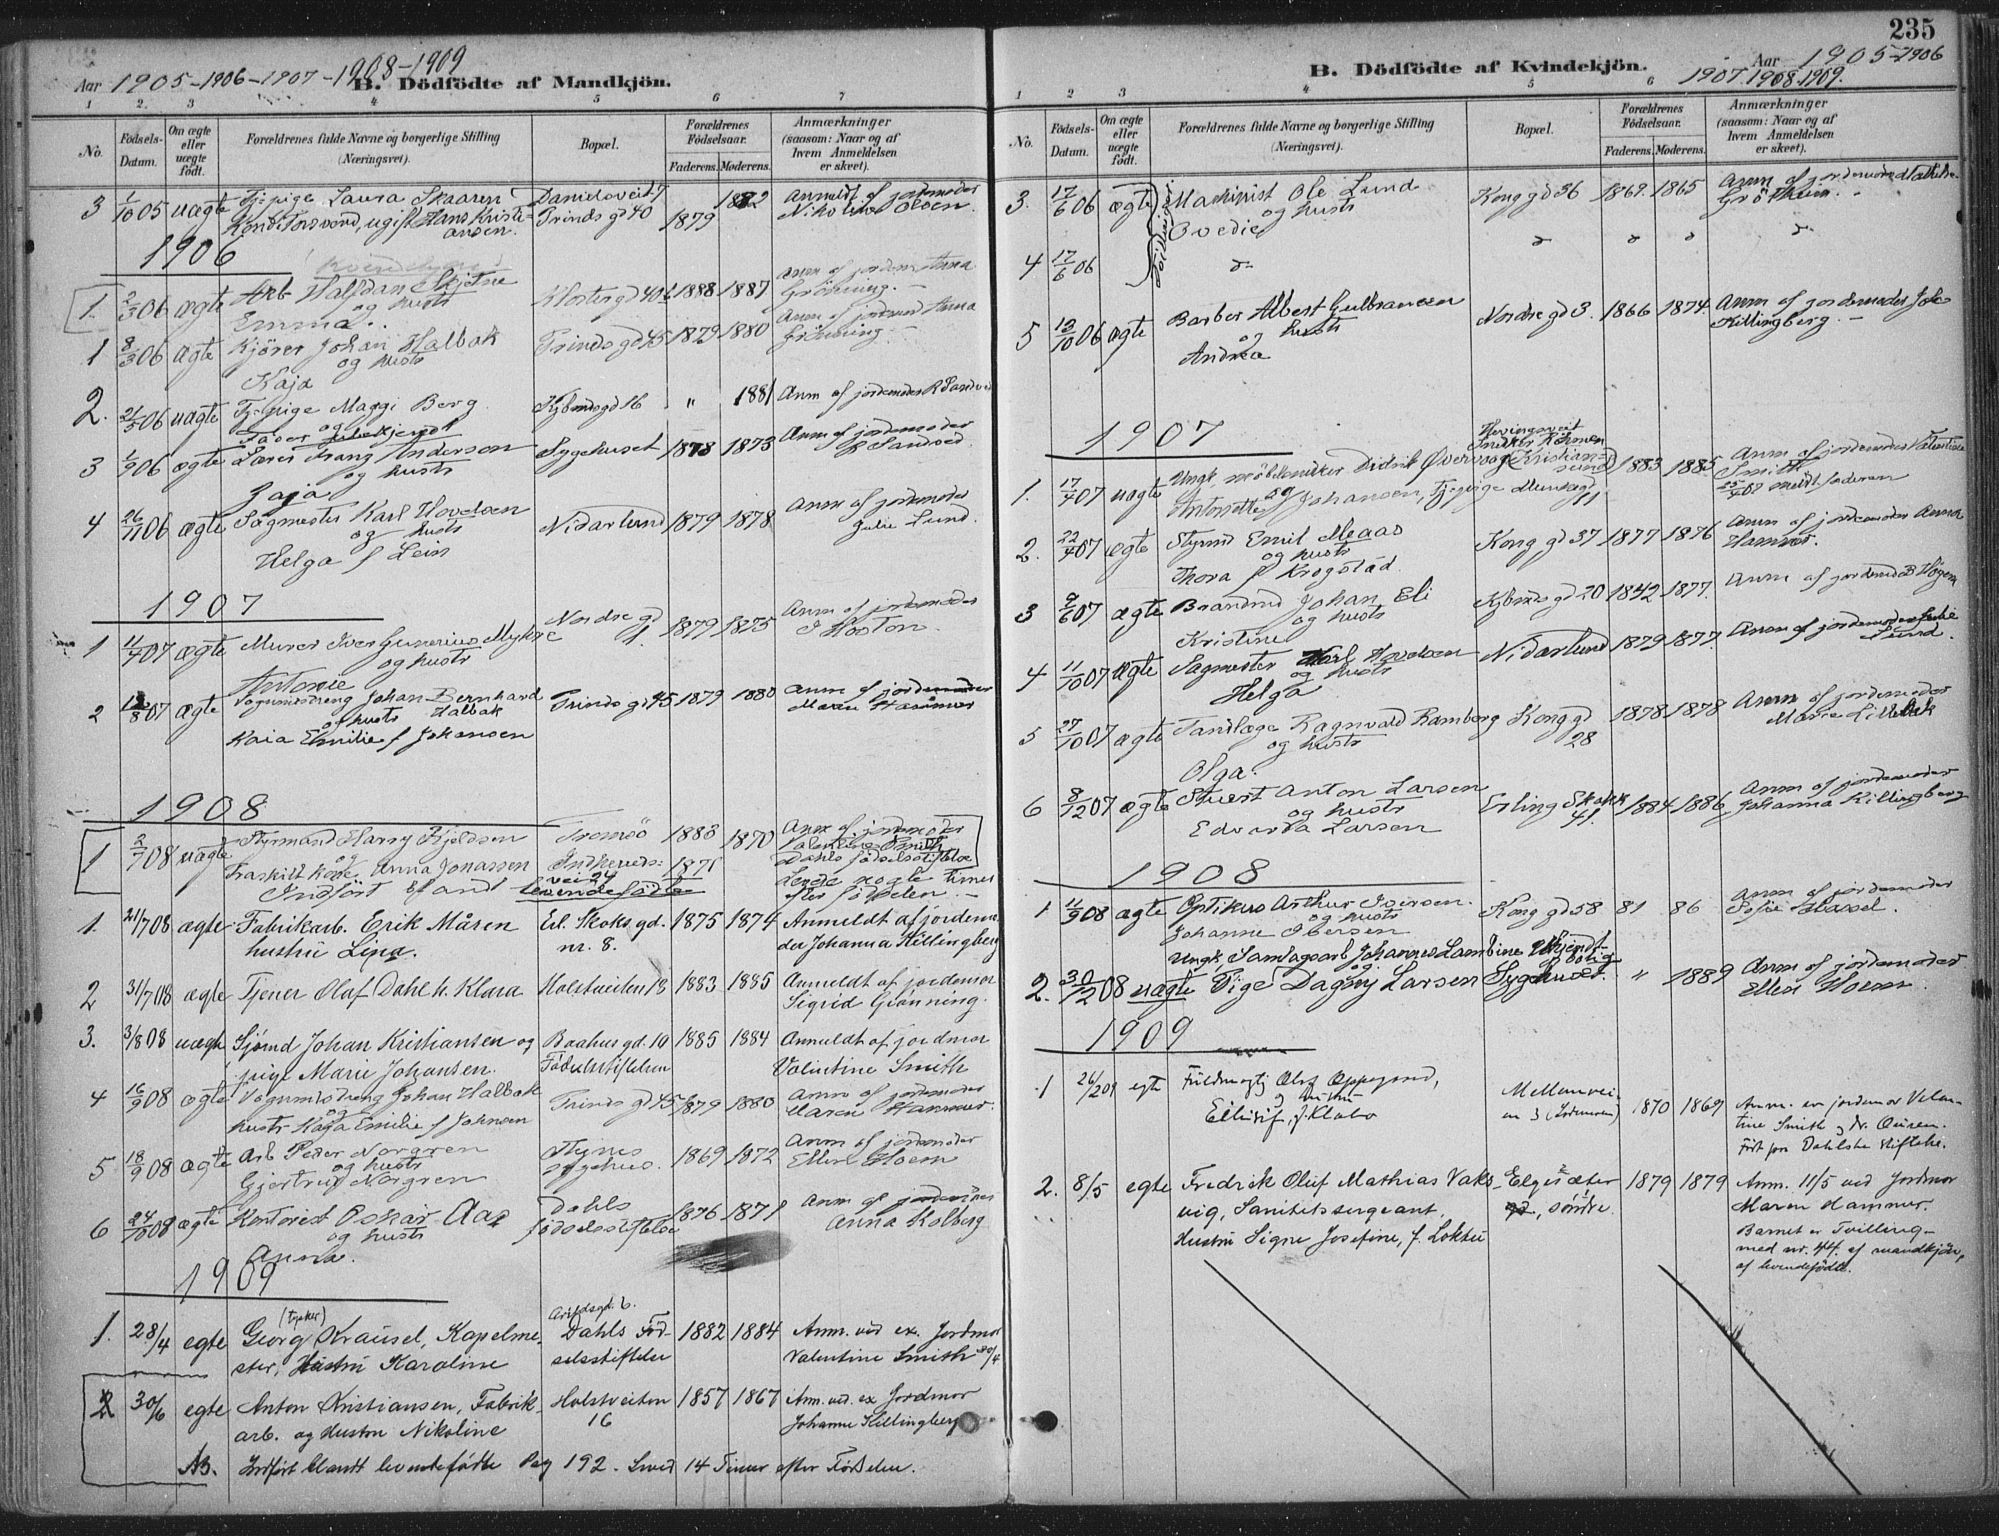 Aar 1905-1906-1907-1908-1909
B. Dödfödte af Mandkjön.
1 2. 3 4 5 6 7
No. Födsels-Datum. Om ægte eller uægte født. Forældrenes fulde Navne og borgerlige Stilling (Næringsvei). Bopæl. Forældrenes Födselsaar. Faderens. Moderens. Anmærkninger (saasom: Naar og af hvem Anmeldelsen er skeet).
3 1/10 05 uægte Tj.pige Laura Skaaren Danielsveit 7 1882 Anmeldt af jordemoder
Konditorsvend, ugift Hans Kristi- Trinds gd 40 1879 Nikoline Olsen.
ansen.
1906
1. 2/3 06 ægte Arb Halfdan Skjetne Kloster gd 40 b 1888 1887 Anm af jordem Anna
og hustr Grönning.
Emma.
1 8/3 06 ægte Kjörer Johan Halbak Trinds gd 45 1879 1880 Anm af jordmod Anna
og hustr Grönning
Kaja
2. 21/5 06 uægte Tj-pige Maggi Berg Kjbmds gd 16 " 1881 Anm af jordemoder R Sandved
og
Fader ubekjendt
3 1/9 06 ægte Lærer Frang Anderson Sygehuset 1873 1873 Anm af jordemoder
og hustr R Sandved
Zaja
4 26/11 06 ægte Sagmester Karl Hovdeen Nidarlund 1879 1878 Anm af jordemoder
og hustr Julie Lund.
Helga f Lein
1907
1 11/4 07 ægte Murer Iver Gunerius Myhre Nordre gd 1. 1879 1875 Anm af jordemoder
og hustr J Hoston.
Antonie
2 12/8 07 ægte Vognmdsdreng Johan Bernhard Trinds gd 45 1879 1880 Anm af jordemoder
og hustr Halbak Maren Hammer
Kaia Emilie f Johansen
1908
1 2/7 08 uægte Styrmand Harry Kjeldsen Tromsö 1883 1870 Anm af jordemoder
og Valentine Smith
fraskilt kone Anna Jonassen Indhereds- 1871 Dahls födselsstiftelse
vei 24 Levde nogle timer
Indfört blandt levendefödte efter födselen.
1. 21/7 08 ægte Fabrikarb. Erik Måsen Erl. Skaks gd. 1875 1874 Anmeldt af jordemo
hustru Lina. nr. 8. der Johanna Killingberg
2 31/7 08 ægte Tjener Olaf Dahl h. Klara Holstveiten 13 1883 1885 Anmeldt af jordemor
Sigrid Grönning.
3. 3/8 08 uægte Sjömd Johan Kristiansen og Baahus gd. 10 1885 1884 Anmeldt af jordmor
pige Marie Johansen. Födselsstiftelsen Valentine Smith
4 16/9 08 ægte Vognmdsdreng Johan Halbak Trinds gd 45 1879 1880 Anm af jordemoder
og Maren Hammer.
hustr Kaja Emilie f Johnsen
5 18/9 08 ægte Arb Peder Norgren sygehus. 1869 1872 Anm af jordemoder
og hustr Ellen Hoem
Gjertrud Norgren
6 24/10 08 ægte Kontorist Oskar Aas Dahls 1876 1871 Anm af jordemoder
og hustr födselsstiftelse Anna Kolberg
Anna.
1909
(tysker) Arildsgd. 6.
1. 28/4 egte Georg Krausel, Kapelme- Dahls Föd- 1882 1884 Anm. ved ex. Jordmor
ster, Hustru Karoline selsstiftelse Valentine Smith 30/4
2 30/6 egte Anton Kristiansen, Fabrik- Holstveiten 1857 1867 Anm. ved ex Jordmor
arb. og Hustru Nikoline 16 Johanne Killingberg
NB. Indfört blandt levendefödte Pag 192. Leved 14 Timer efter Födselen.
235
Aar 1905-1906
B. Dödfödte af Kvindekjön. 1907. 1908. 1909.
1 2 3 4 5 6
No. Födsels-Datum. Om ægte eller uægte født. Forældrenes fulde Navne og borgerlige Stilling (Næringsvei). Bopæl. Forældrenes Födselsaar. Faderens. Moderens. Anmærkninger (saasom: Naar og af hvem Anmeldelsen er skeet).
3. 17/6 06 ægte Maskinist Ole Lund Kong gd 36 1862 1865 Anm af jordemoder Mathilde
og hustr Grötheim.
Ovedie
4 17/6 06
5 13/10 06 ægte Barber Albert Gulbransen Nordre gd 3. 1866 1874. Anm af jordemoder Joh
og hustr Killingberg.
Andrea
1907
1. 17/4 07 uægte Ungk. möbelsnidker Didrik Övervaag Kristian- 1883 1885 Anm af jordemoder Valentine
og sund Smith
Antonette Johansen, Tj-pige Munkegd 11 25/4 07 meldt faderen
2. 22/4 07 ægte Styrmd Emil Meaas Kong gd 37 1877 1876 Anm af jordemoder Anna
og hustr Hammer.
Thora f Krogstad
3 9/6 07 ægte Brandmd Johan Eli Kjbmds gd 20 1842 1877. Anm af jordemod B Högen
og hustr
Kristine
4 11/10 07 ægte Sagmester Karl Hovdeen Nidarlund 1879 1877. Anm af jordemoder Julie
og hustr Lund.
Helga
5 27/10 07 ægte Tandlæge Ragnvald Ramberg Kong gd 1878 1878 Anm af jordemoder
og hustr 28 Marie Lillebak
Olga.
6 8/12 07 ægte Stuert Anton Larsen Erling Skakk 1884 1886 Anm af jordemoder
og hustr 41. Johanna Killingberg
Edvarda Larsen
1908
1 11/9 08 ægte Optikus Arthur Iversen. Kong gd 58 81 86 Anm af jordemoder
og hustr Sofie Hassel.
Johanne Ibersen
Ungk,
2. 30/12 08 uægte Pige Dagny Larsen Sygehuset. " 1889 Anm af jordemoder
Ellen Hoem
1909
1 26/2 09 egte Fuldmægtig Olaf Oppegaard, Mellemvei-
og hustru
Ellisif, f. Klabo en 3 1870 1869 Anm. ex jordemor Valen-
tine Smith
Födt paa Dahlske Stiftelse.
2. 8/5 egte Fredrik Oluf Mathias Vaks- Elgesæter 1879 1879 Anm. 11/5 ved Jordmor
vig, Sanitetssergeant, söndre. Maren Hammer.
Hustru Signe Josefine, f. Loktu Barnet er Tvilling
med nr. 44. af mandkjön,
af levendefödte.